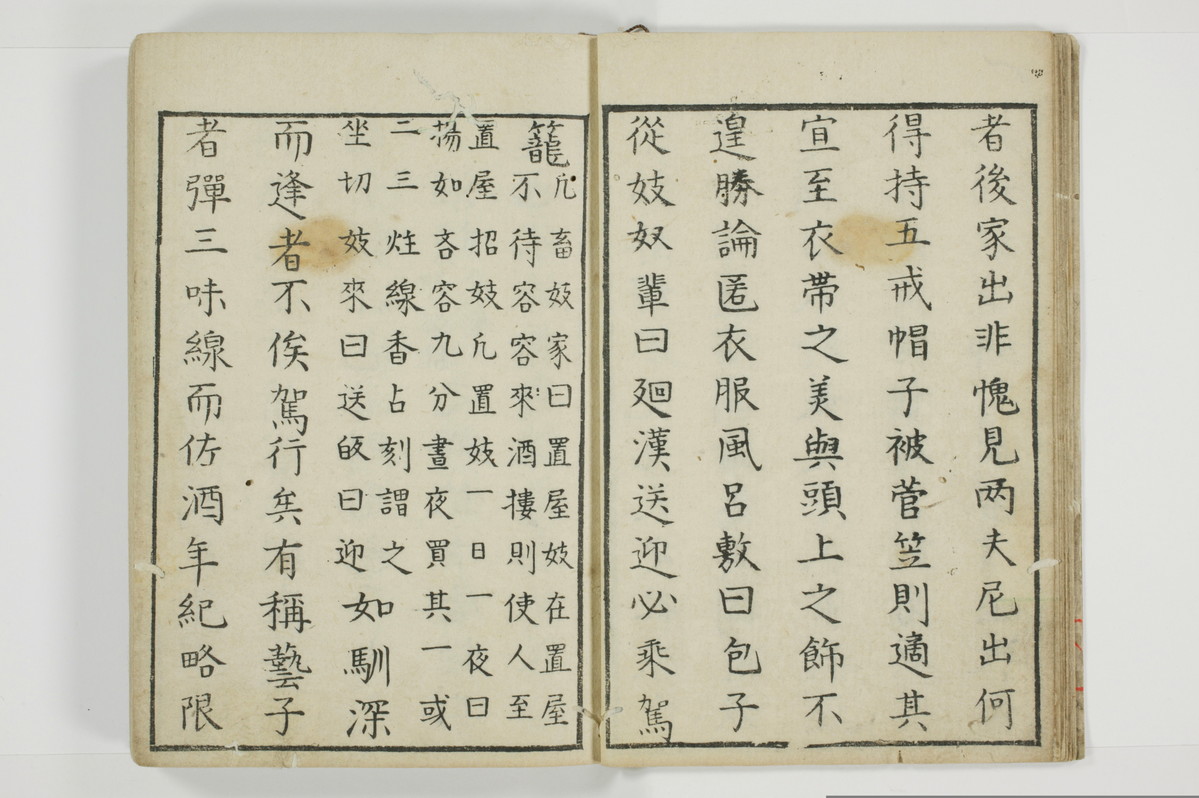 者後家出非愧見两夫尼出何
得持五戒帽子被菅笠則適其
宜至衣帯之美與頭上之飾不
遑勝論匿衣服風呂敷曰包子
從妓奴輩曰廻漢送迎必乘駕
籠凢畜妓家曰置屋妓在置屋
不待容容來酒摟則使人至
置屋招妓凢置妓一日一夜曰
揚如吝容九分晝夜買其一或
二三炷線香占刻謂之
坐切妓來曰送皈曰迎如馴深
而逢者不俟駕行矣有稱藝子
者彈三味線而佐酒年紀略限